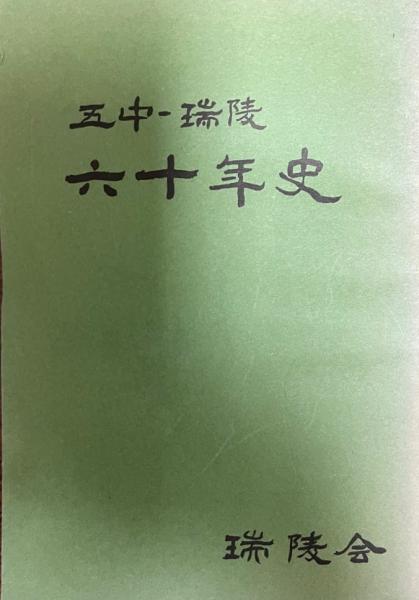 五中-瑞陵
六十年史
瑞陵会